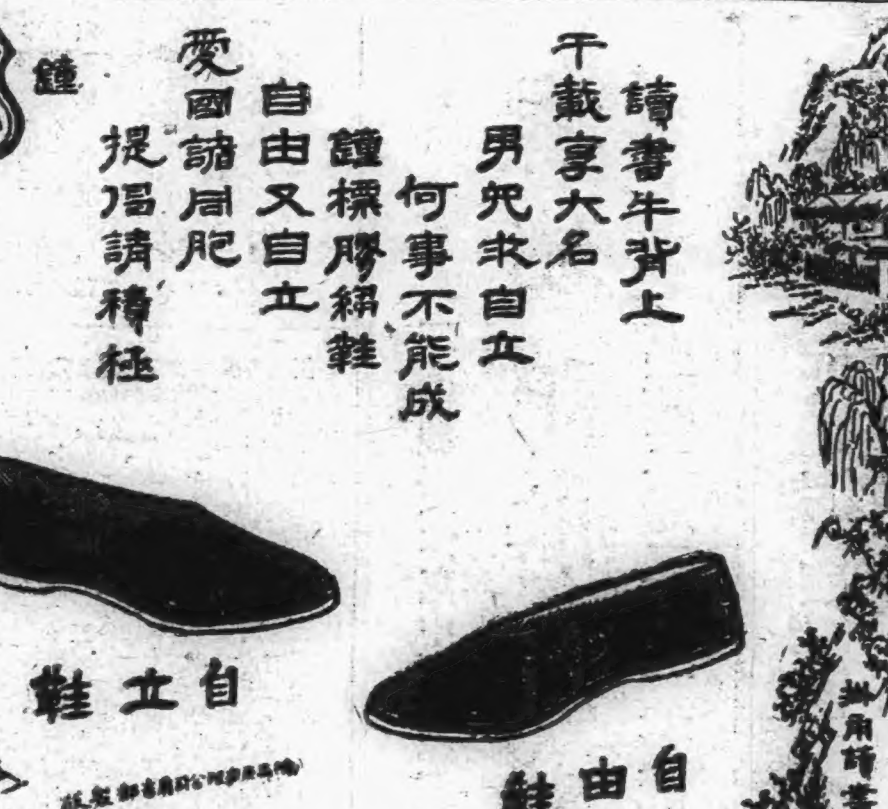 讀書牛背上
千載享大名
男兒求自立
何事不能成
鐘標膠綢鞋
自由又自立
愛國諸同胞
提倡請積極
鐘
自由鞋
自立鞋
掛角讀書